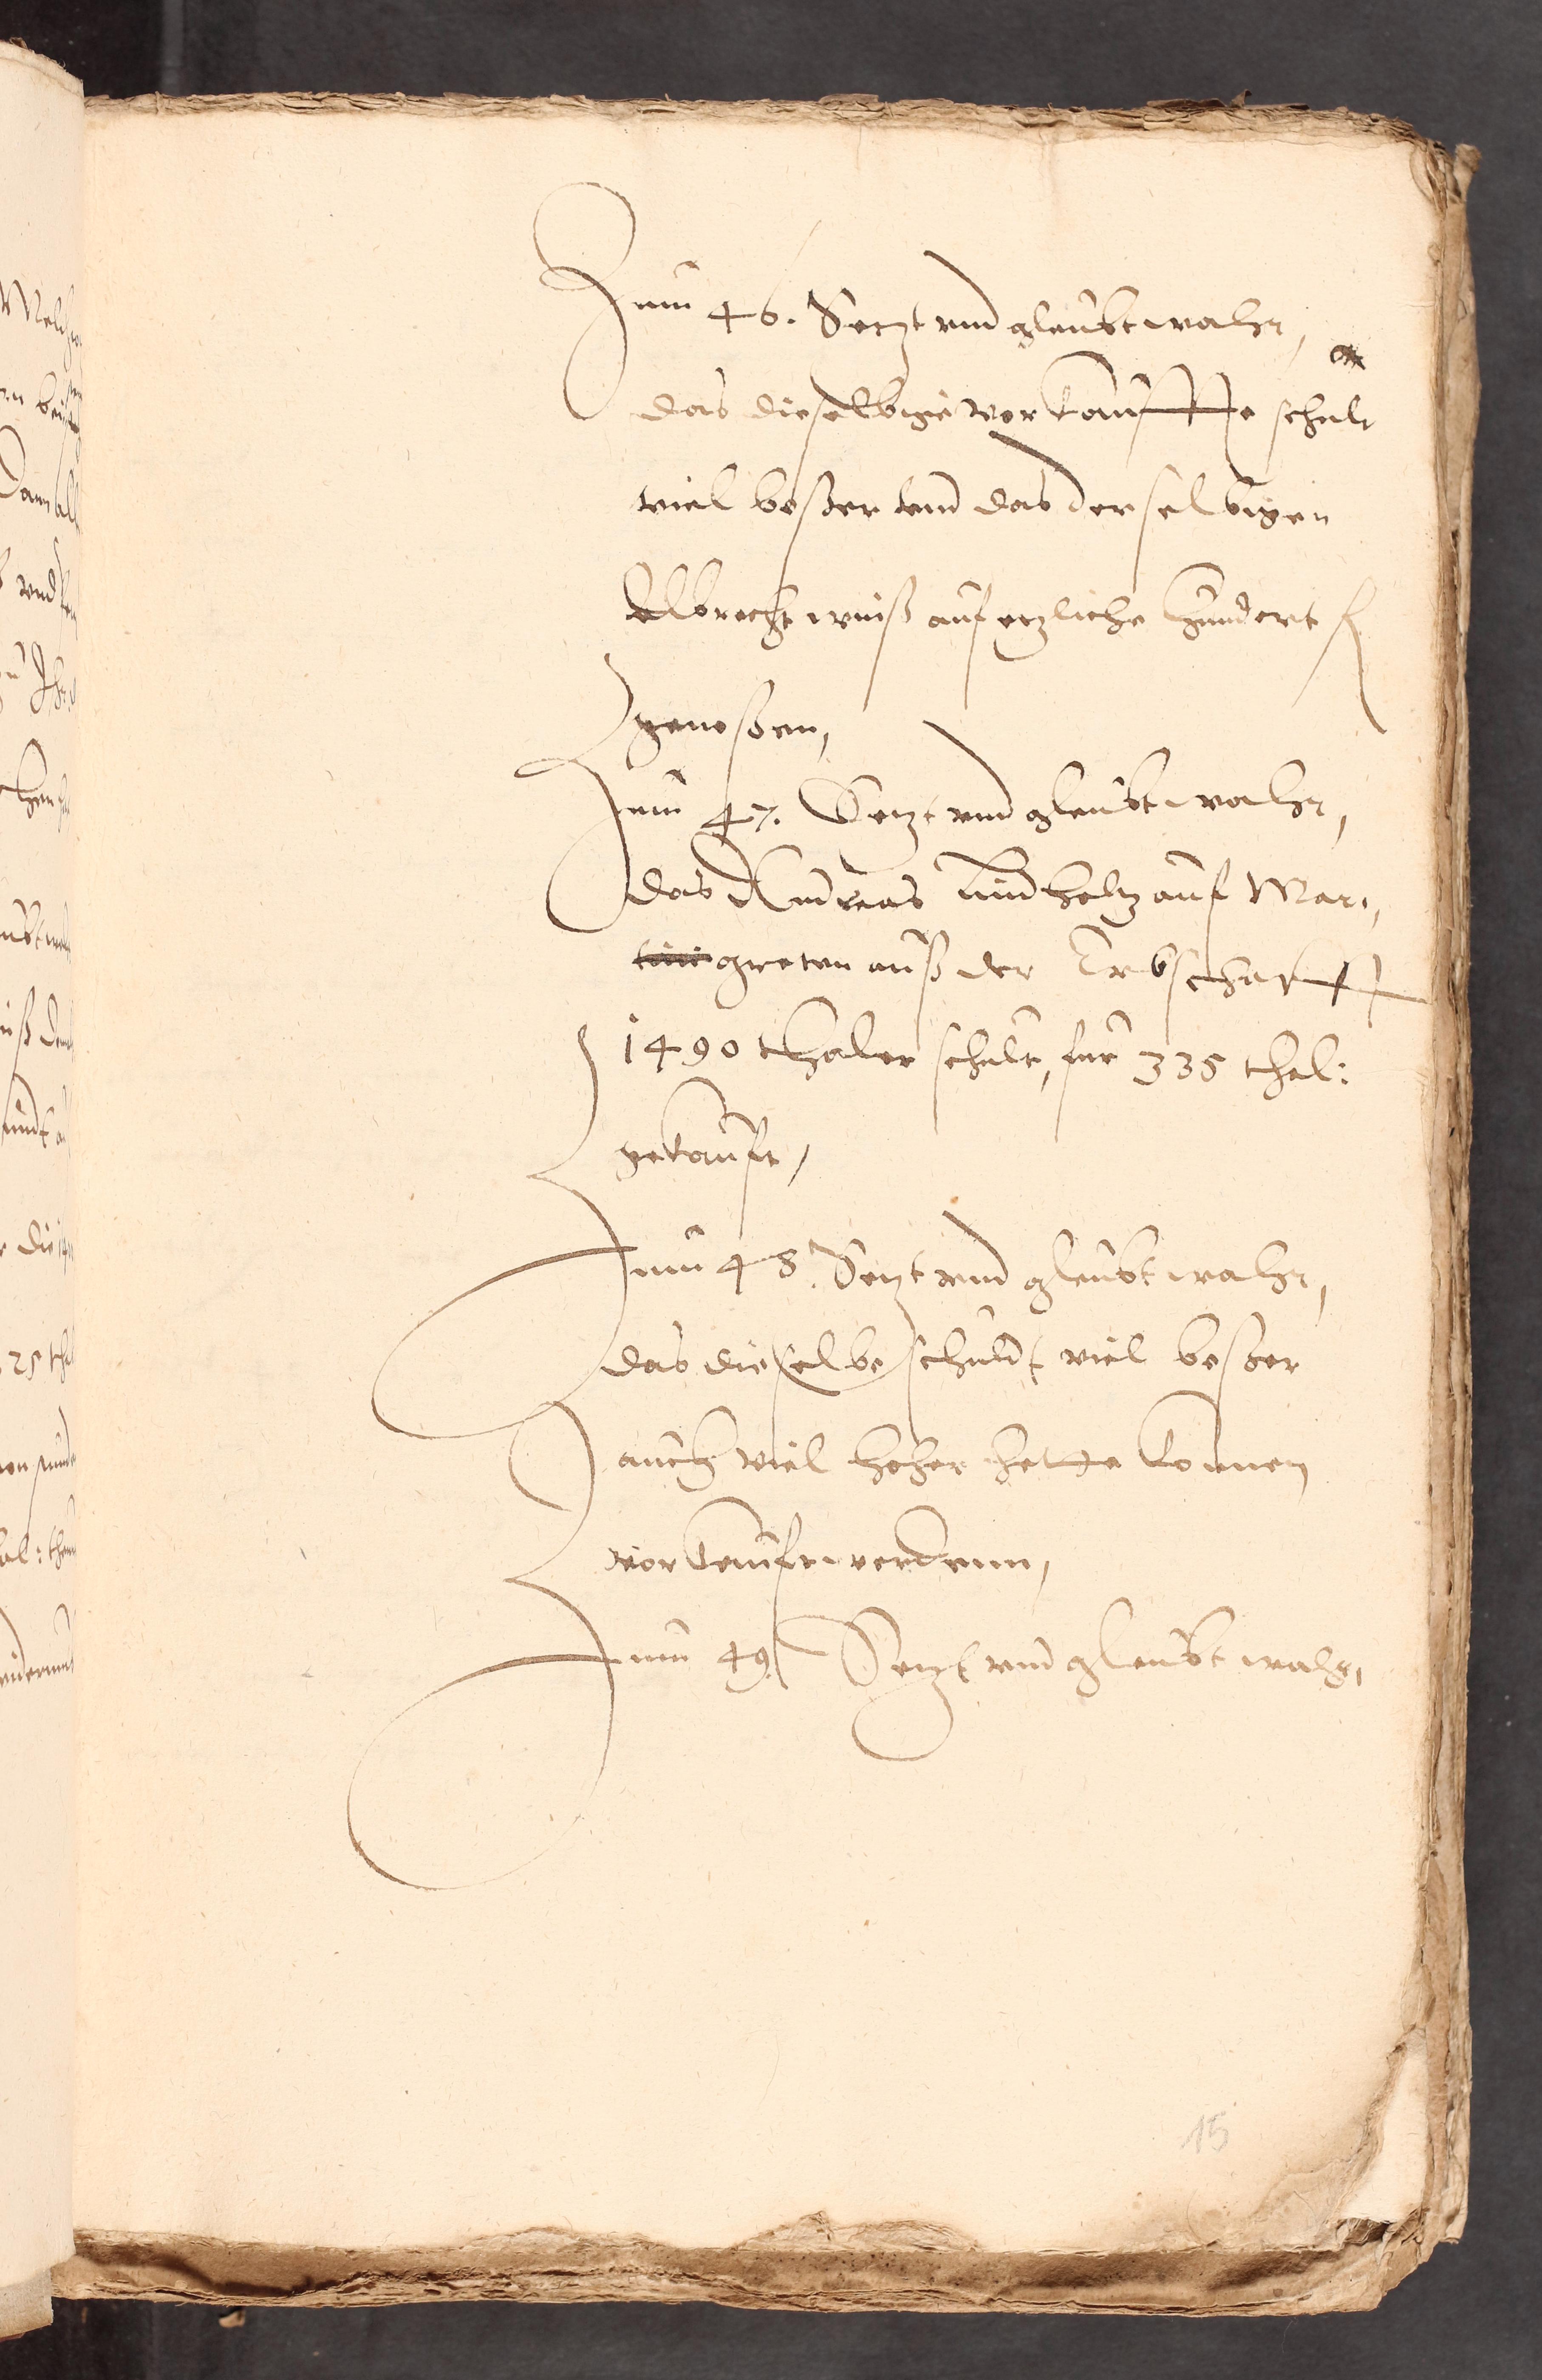 Zum 46. Setzt vnd gleubt wahr,
das dieselbige verkauffte schult
viel besser vnd das derselbigen
Albrecht weiß auf etzliche hundert fl
genossen,
Zum 47. Setzt vnd gleubt wahr,
das Andreas Lindholtz auf Mar,
greten auß der Erbschafft
1490 thaler schult, fur 335 thal:
gekauft,
Zum 48. Setzt vnd gleubt wahr,
das dieselbe schuldt viel besser
auch viel hoher hette konnen
vorkauft werdenn,
Zum 49. Setzt vnd gleubt wahr,
15